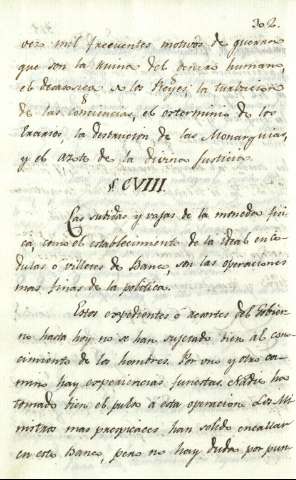 302.
otro mil frecuentes motivos de guerra
que son la ruina del género humano,
el de los Reyes, la turbacion
de las conciencias, el esterminio de los
Erarios, la destruccion de las Monarquias,
y el azote de la divina Justicia
§ CVIII.
Las subidas y vajas de la moneda fisi
ca, como el establecimiento de la ideal en Ce
dulas ó villetes de Banco, son las operaciones
mas finas de la politica.
Estos expedientes ó del Gobier
no hasta hoy no se han sujetado bien al co
nocimiento de los hombres. Por uno y otro ca
mino hay experiencias funestas. Nadie ha
tomado bien el pulso á esta operacion. Los Mi
nistros mas perspicaces han solido encallar
en este Banco, pero no hay duda por pun